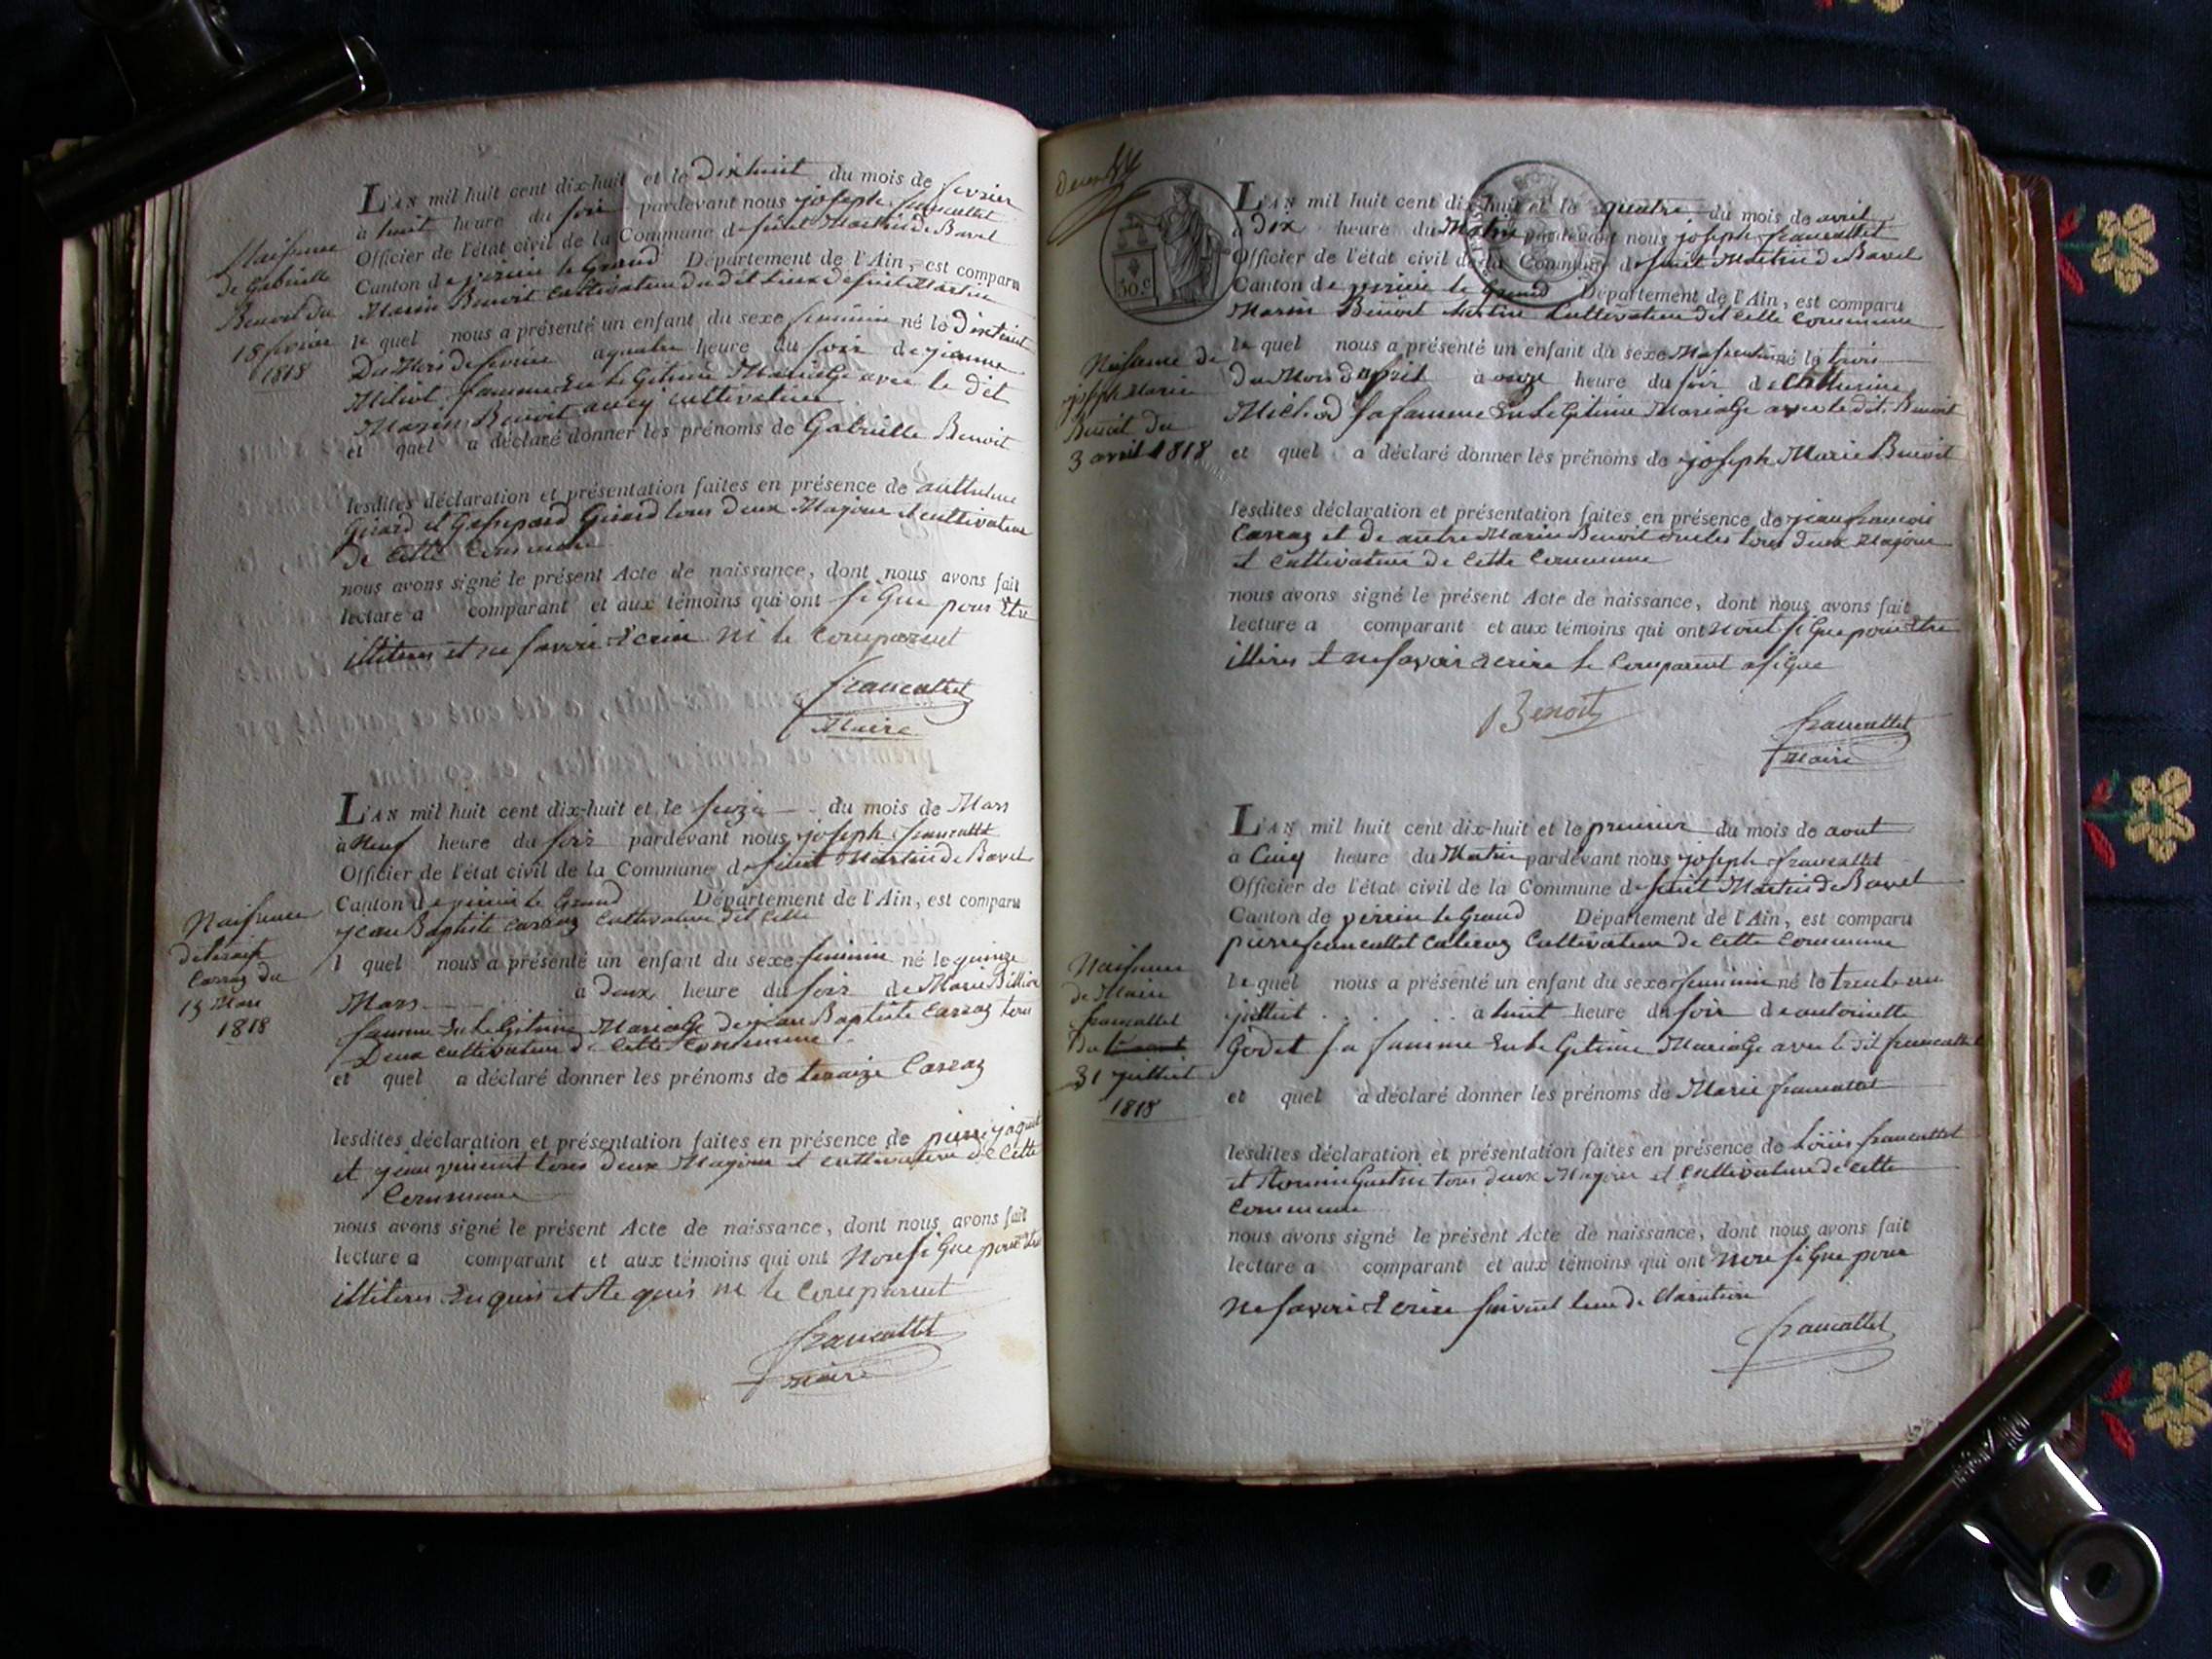 L'AN mil huit cent dix-huit et le dixhuit du mois de fevrier
à huit heure du soir pardevant nous joseph francallet
Officier de l'état civil de la Commune de saint Martin de Bavel
Canton de virieu le Grand Département de l'Ain, est comparu
Marin Benoit cultivateur du dit lieux de saint Martin
le quel nous a présenté un enfant du sexe feminin né le dixhuit
Du Mois de fevrier a quatre heure du soir de jeanne
Miliot famme en le Gitime Mariage avec le dit
Marin Benoit aucy cultivateur
et quel a déclaré donner les prénoms de Gabrielle Benoit
lesdites déclaration et présentation faites en présence de anthelme
Girard et Gaspard Girard tous deux Majeur et cultivateur
de cette commune
nous avons signé le présent Acte de naissance, dont nous avons fait
lecture a comparant et aux témoins qui ont signe pour etre
illiteres et ne savoir ecrire ni le comparent
francallet
Maire
Naissance
de Gabrielle
Benoit du
18 fevrier
1818
L'AN mil huit cent dix-huit et le seize du mois de Mars
à Neuf heure du soir pardevant nous joseph francallet
Officier de l'état civil de la Commune de saint Martin de Bavel
Canton de virieu le Grand Département de l'Ain, est comparu
jean Baptiste carraz cultivateur dit cette
l quel nous a présenté un enfant du sexe feminin né le quinze
Mars à deux heure du soir de Marie Billion
famme en le Gitime Mariage de jean Baptiste carraz tous
Deux cultivateur de cette commune
et quel a déclaré donner les prénoms de teraize Carraz
lesdites déclaration et présentation faites en présence de pierre jaquet
et jean vincent tous deux Majeur et cultivateur de cette
Commune
nous avons signé le présent Acte de naissance, dont nous avons fait
lecture a comparant et aux témoins qui ont Non signe pour etre
illiteres en quis et Re quis ni le comparent
francallet
Maire
Naissance
de teraize
Carraz du
15 Mars
1818
30 c.
L'AN mil huit cent dix-huit et le quatre du mois de avril
à dix heure du Matin pardevant nous joseph francallet
Officier de l'état civil de la Commune de saint Martin de Bavel
Canton de virieu le Grand Département de l'Ain, est comparu
Marin Benoit cultivateur dit cette commune
le quel nous a présenté un enfant du sexe Masculin né le trois
du Mois d'avril à onze heure du soir de Catherine
Michod sa famme en le Gitime Mariage avec le dit Benoit
et quel a déclaré donner les prénoms de joseph Marie Benoit
lesdites déclaration et présentation faites en présence de jean francois
Carraz et de autre Marin Benoit tous deux Majeur
et cultivateur de cette commune
nous avons signé le présent Acte de naissance, dont nous avons fait
lecture a comparant et aux témoins qui ont nont signe pour etre
illires et ne savoir ecrire le comparent a signe
Benoit
francallet
Maire
Naissance de
joseph Marie
Benoit du
3 avril 1818
L'AN mil huit cent dix-huit et le premier du mois de aout
à Cinq heure du Matin pardevant nous joseph francallet
Officier de l'état civil de la Commune de saint Martin de Bavel
Canton de virieu le Grand Département de l'Ain, est comparu
pierre francallet cultivateur de cette commune
le quel nous a présenté un enfant du sexe feminin né le trente un
juillet à huit heure du soir de antoinette
Godet sa famme en le Gitime Mariage avec le dit francallet
et quel a déclaré donner les prénoms de Marie francallet
lesdites déclaration et présentation faites en présence de Louis francallet
et tous deux Majeur et cultivateur de cette
Commune
nous avons signé le présent Acte de naissance, dont nous avons fait
lecture a comparant et aux témoins qui ont non signe pour
ne savoir ecrire suivent leur de claration
francallet
Naissance
de Marie
francallet
du
31 juilliet
1818